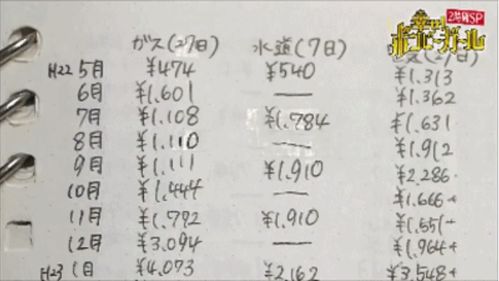 2時間SP
幸せ!ボンビーガール
ガス(27日) 水道(7日)
H22 5月 ¥474 ¥540 ¥1.313
6月 ¥1.601 — ¥1.362
7月 ¥1.108 ¥1.784 ¥1.631
8月 ¥1.110 — ¥1.912
9月 ¥1.111 ¥1.910 ¥2.286
10月 ¥1.444 — ¥1.666
11月 ¥1.792 ¥1.910 ¥1.551
12月 ¥3.094 — ¥1.964
H23 1月 ¥4.073 ¥2.162 ¥3.548